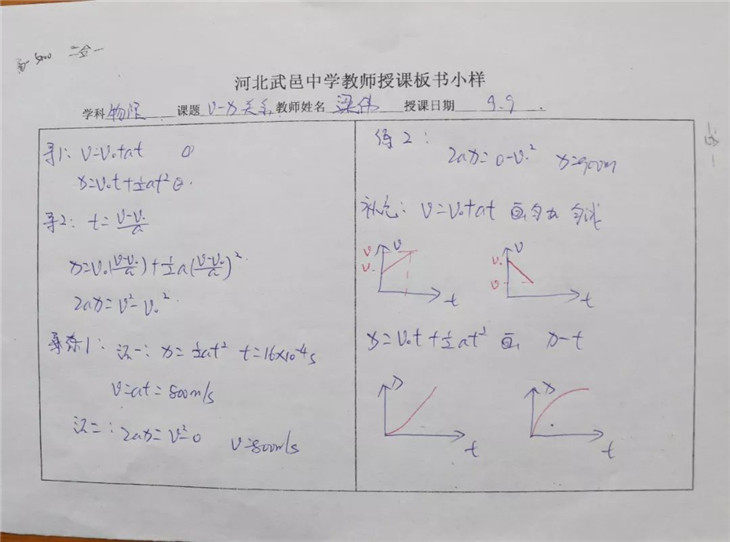 二合一
河北武邑中学教师授课板书小样
学科 物理 课题 v-x关系 教师姓名 梁伟 授课日期 9.9.
导1: v=v₀+at ①
x=v₀t+½at² ②
导2: t=(v-v₀)/a
x=v₀((v-v₀)/a)+½a((v-v₀)/a)²
2ax=v²-v₀²
练1: 法一: x=½at² t=16×10⁻⁴s
v=at=800m/s
法二: 2ax=v²-0 v=800m/s
练2:
2ax=0-v₀² x=900m
补充: v=v₀+at 画匀加 匀减
v
v
v₀
t
v
v₀
v
t
x=v₀t+½at² 画 x-t
x
t
x
t